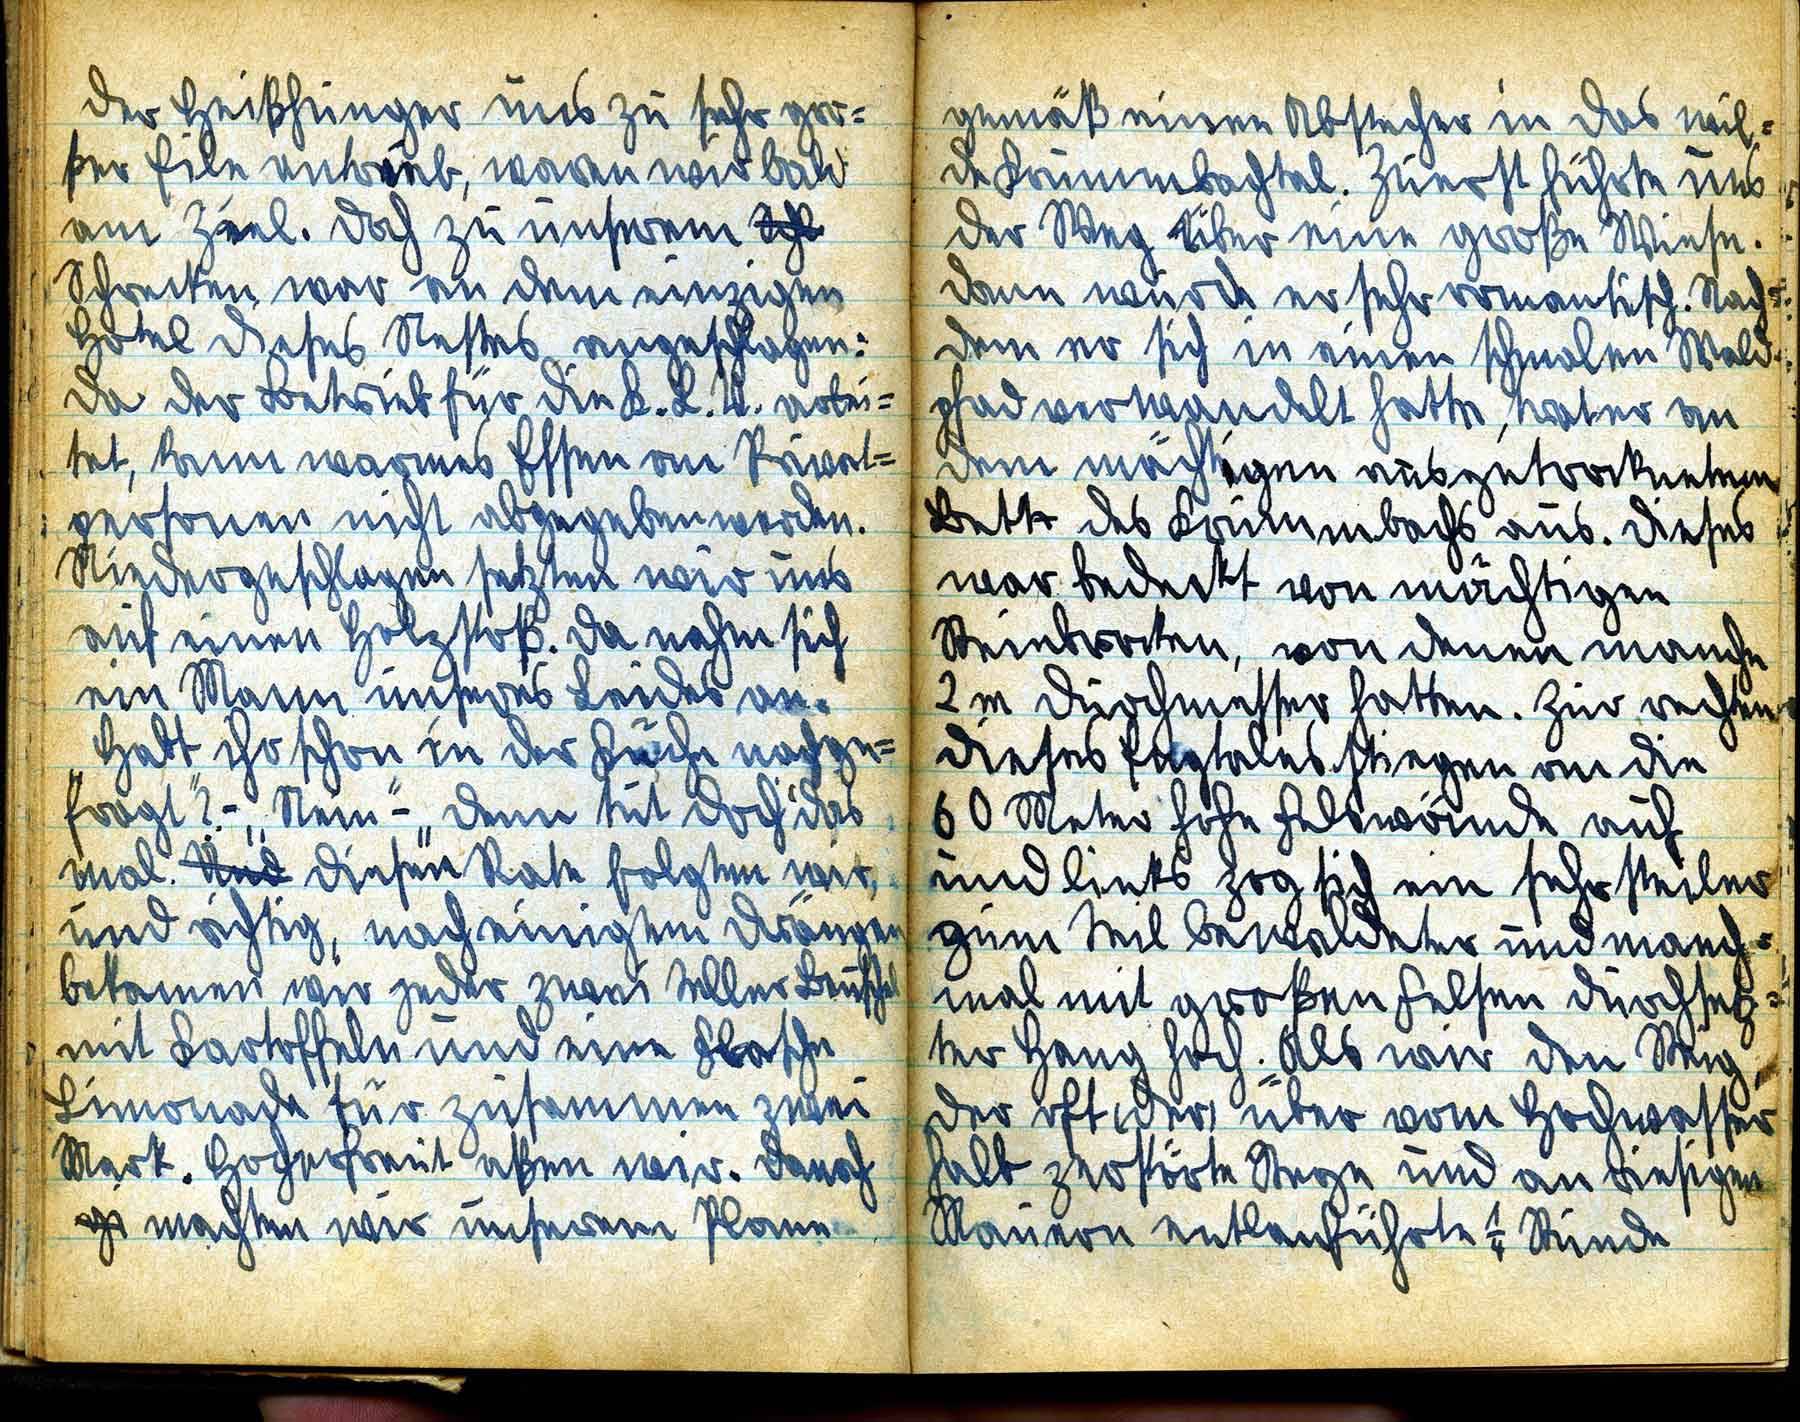 der Heißhunger uns zu sehr gro=
ßer Eile antrieb, waren wir bald
am Ziel. Doch zu unserem Sch
Schrecken war an dem einzigen
Hotel dieses Nestes angeschlagen:
Da der Betrieb für die K.L.V. arbei=
tet, kann warmes Essen an Privat=
personen nicht abgegeben werden.
Niedergeschlagen setzten wir uns
auf einen Holzstoß. Da nahm sich
ein Mann unseres Leides an.
„Habt ihr schon in der Küche nachge=
fragt"? - „Nein" - „Dann tut doch das
mal. Und diesen Rate folgten wir,
und richtig, nach einigem Drängen
bekamen wir jeder zwei Teller Beuschel
mit Kartoffeln und eine Flasche
Limonade für zusammen zwei
Mark. Hocherfreut aßen wir. Danach
gi machten wir unserem Plane
gemäß einen Abstecher in das wil=
de Krummbachtal. Zuerst führte uns
der Weg über eine große Wiese.
Dann wurde er sehr romantisch. Nach=
dem er sich in einen schmalen Wald=
pfad verwandelt hatte, trat er an
dem mächtigen ausgetrockneten
Bett des Krummbachs aus. Dieses
war bedeckt von mächtigen
Steinbrocken, von denen manche
2 m Durchmesser hatten. Zur rechten
dieses Engtales stiegen an die
60 Meter hohe Felswände auf
und links zog sich ein sehr steiler
zum Teil bewaldeter und manch=
mal mit großen Felsen durchsetz=
ter Hang hoch. Als wir den Weg,
der oft (der) über vom Hochwasser
halb zerstörte Stege und an riesigen
Mauern entlanführte ¼ Stunde